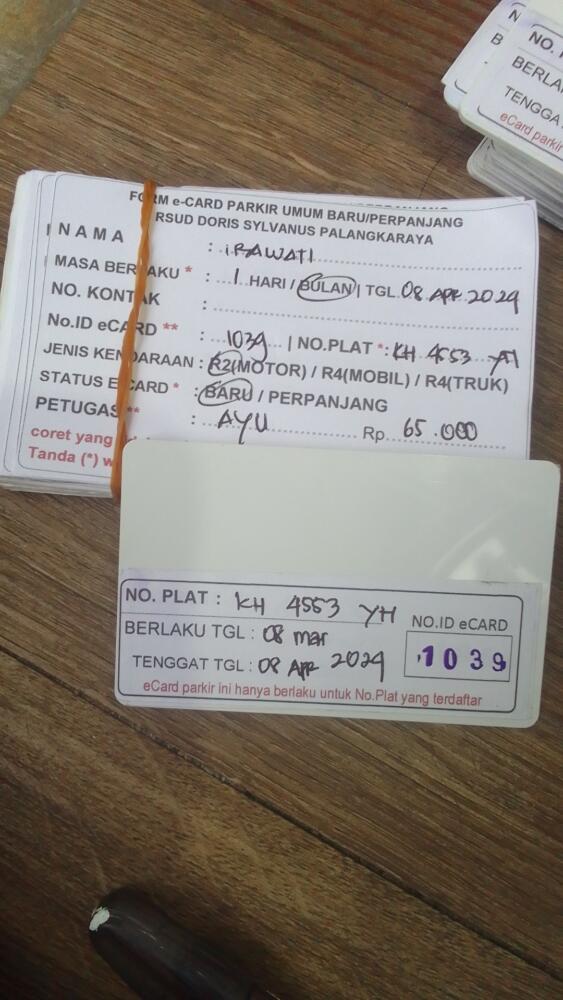 FORM e-CARD PARKIR UMUM BARU/PERPANJANG
RSUD DORIS SYLVANUS PALANGKARAYA
NAMA : iRAWATI
MASA BERLAKU * : 1 HARI / BULAN | TGL 08 APR 2024
NO. KONTAK :
No.ID eCARD ** : 1039 | NO.PLAT * : KH 4553 YH
JENIS KENDARAAN : R2(MOTOR) / R4(MOBIL) / R4(TRUK)
STATUS ECARD * : BARU / PERPANJANG
PETUGAS ** : AYU Rp 65.000
coret yang
Tanda (*) w
NO. PLAT : KH 4553 YH
NO.ID eCARD
BERLAKU TGL : 08 mar
1039
TENGGAT TGL : 08 Apr 2024
eCard parkir ini hanya berlaku untuk No.Plat yang terdaftar
NO.
BERLA
TENGGAT
eCard parkir